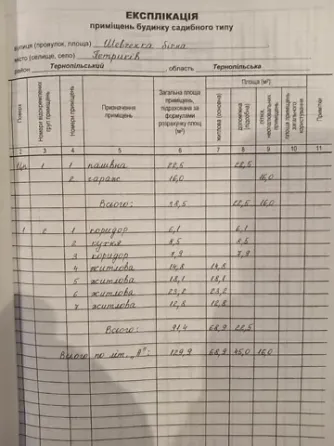 ЕКСПЛІКАЦІЯ
приміщень будинку садибного типу
вулиця (провулок, площа) Шевченка бічна
місто (селище, село) Петриків
район Тернопільський , область Тернопільська
Поверхи
Номери відокремлених груп приміщень
Номери приміщень
Призначення приміщень
Загальна площа приміщень, підрахована за формулами розрахунку площ (м²)
Площа (м²)
житлова (основна)
допоміжна (підсобна)
літніх, неопалювальних приміщень
площа приміщень загального користування
Примітки
1 3 4 5 6 7 8 9 10 11
1 паливна 22,5 22,5
2 гараж 16,0 16,0
Всього: 38,5 22,5 16,0
1 2 1 коридор 6,1 6,1
2 кухня 8,5 8,5
3 коридор 7,9 7,9
4 житлова 14,8 14,8
5 житлова 18,1 18,1
6 житлова 23,2 23,2
7 житлова 12,8 12,8
Всього: 91,4 68,9 22,5
Всього по літ. „А": 129,9 68,9 45,0 16,0